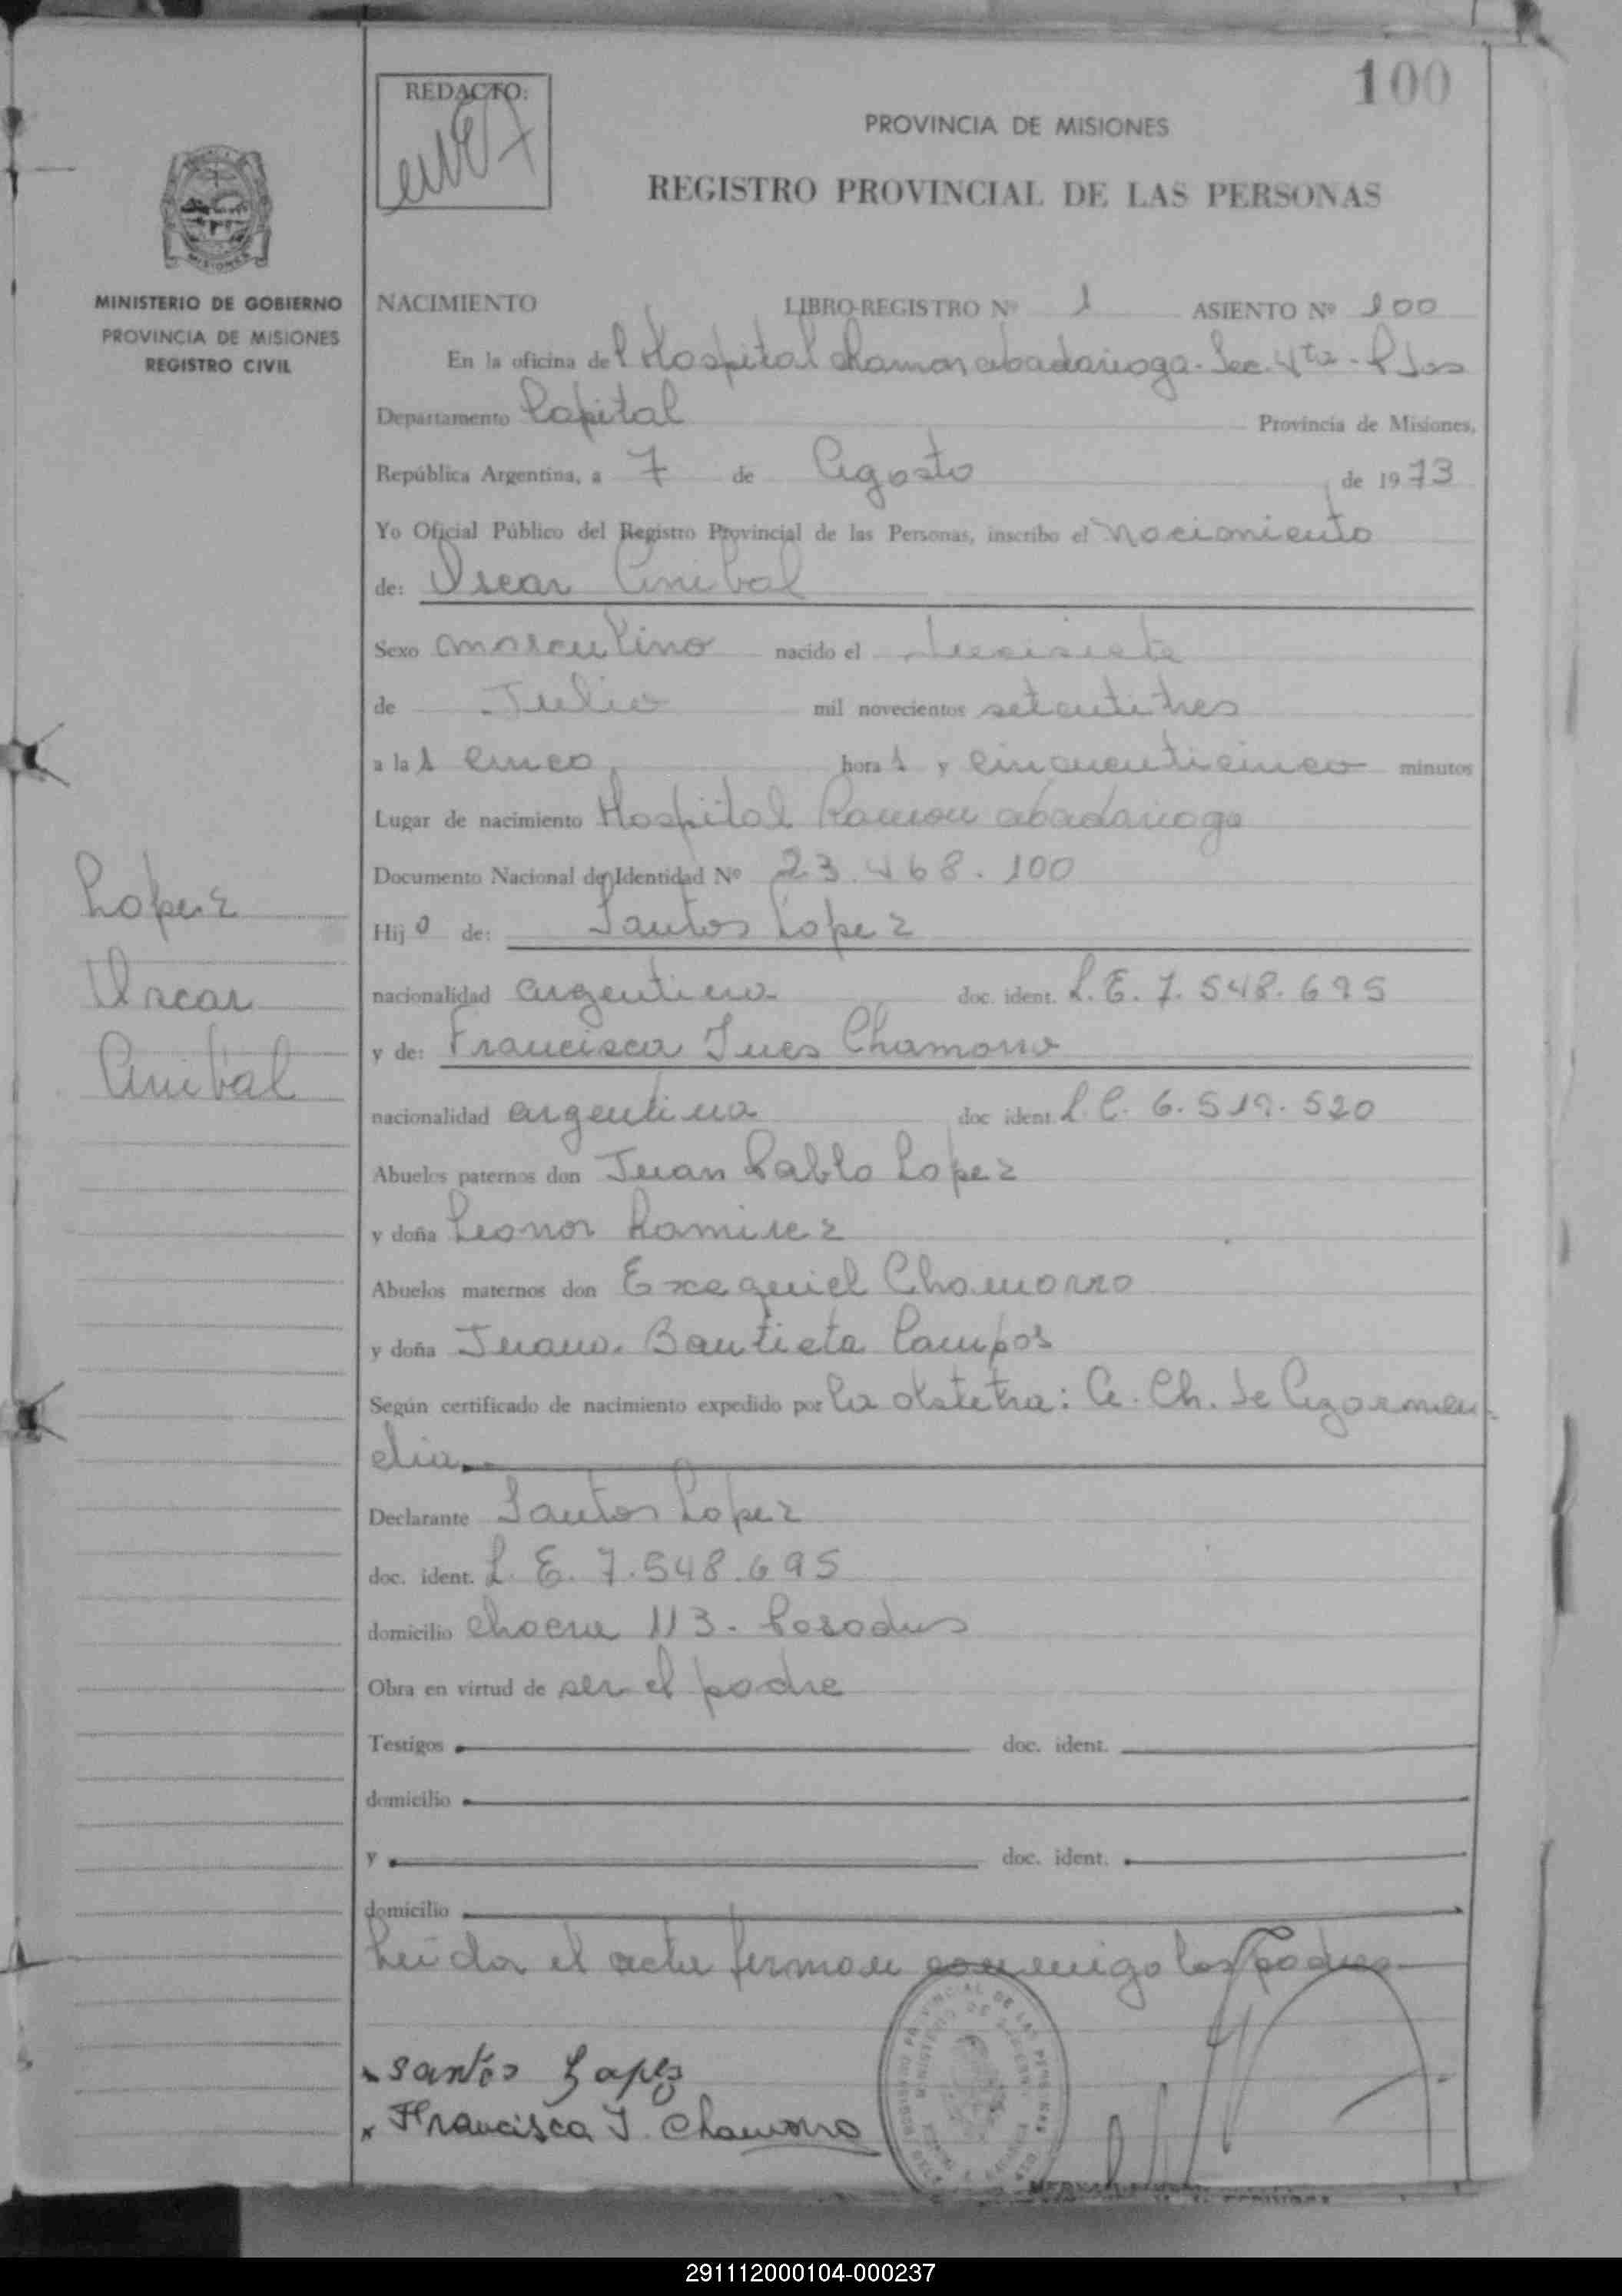 100
REDACTO:
PROVINCIA DE MISIONES
REGISTRO PROVINCIAL DE LAS PERSONAS
MISIONES
MINISTERIO DE GOBIERNO
PROVINCIA DE MISIONES
REGISTRO CIVIL
NACIMIENTO LIBRO-REGISTRO Nº 1 ASIENTO Nº 100
En la oficina del Hospital Ramon abadarioga. Sec. 4ta - Pdas
Departamento Capital Provincia de Misiones,
República Argentina, a 7 de Agosto de 1973
Yo Oficial Público del Registro Provincial de las Personas, inscribo el nacimiento
de: Oscar Anibal
Sexo masculino nacido el diecisiete
de Julio mil novecientos setentitres
a las cinco horas y cincuenticinco minutos
Lugar de nacimiento Hospital Ramon abadarioga
Documento Nacional de Identidad Nº 23.468.100
Hijo de: Santos Lopez
nacionalidad argentina doc. ident. L.E. 7.548.695
y de: Francisca Ines Chamorro
nacionalidad argentina doc ident. L.C. 6.519.520
Abuelos paternos don Juan Pablo Lopez
y doña Leonor Ramirez
Abuelos maternos don Exequiel Chamorro
y doña Juana Bautista Campos
Según certificado de nacimiento expedido por la obstetra: A. Ch. de Agarmen-
dia
Declarante Santos Lopez
doc. ident. L.E. 7.548.695
domicilio chacra 113 - Posadas
Obra en virtud de ser el padre
Testigos doc. ident.
domicilio
y doc. ident.
domicilio
Leida el acta firman conmigo los padres
Santos Lopez
Francisca I. Chamorro
Lopez
Oscar
Anibal
291112000104-000237